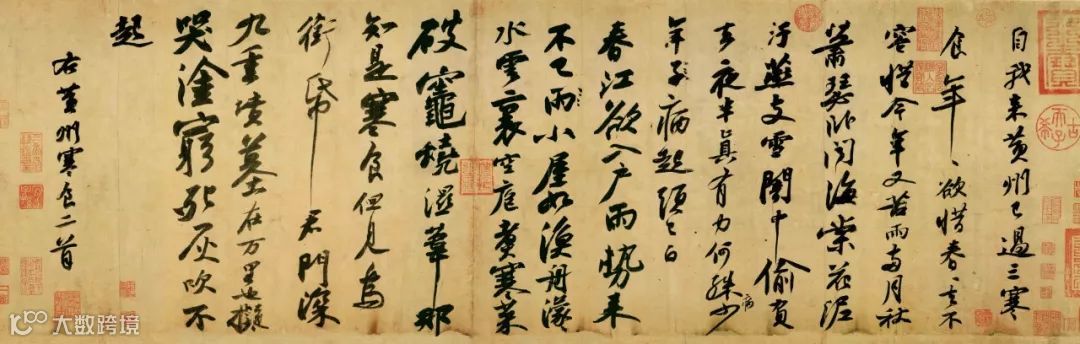 自我来黄州已過三寒
食年〻欲惜春〻去不
容惜今年又苦雨兩月秋
蕭瑟卧聞海棠花泥
汙燕支雪闇中偷負
去夜半真有力何殊病少
年子病起頭已白
春江欲入户雨勢来
不已雨小屋如漁舟濛〻
水雲裏空庖煑寒菜
破竈燒濕葦那
知是寒食但見烏
銜帋君門深
九重墳墓在万里也擬
哭塗窮死灰吹不
起
右黄州寒食二首
大数跨境